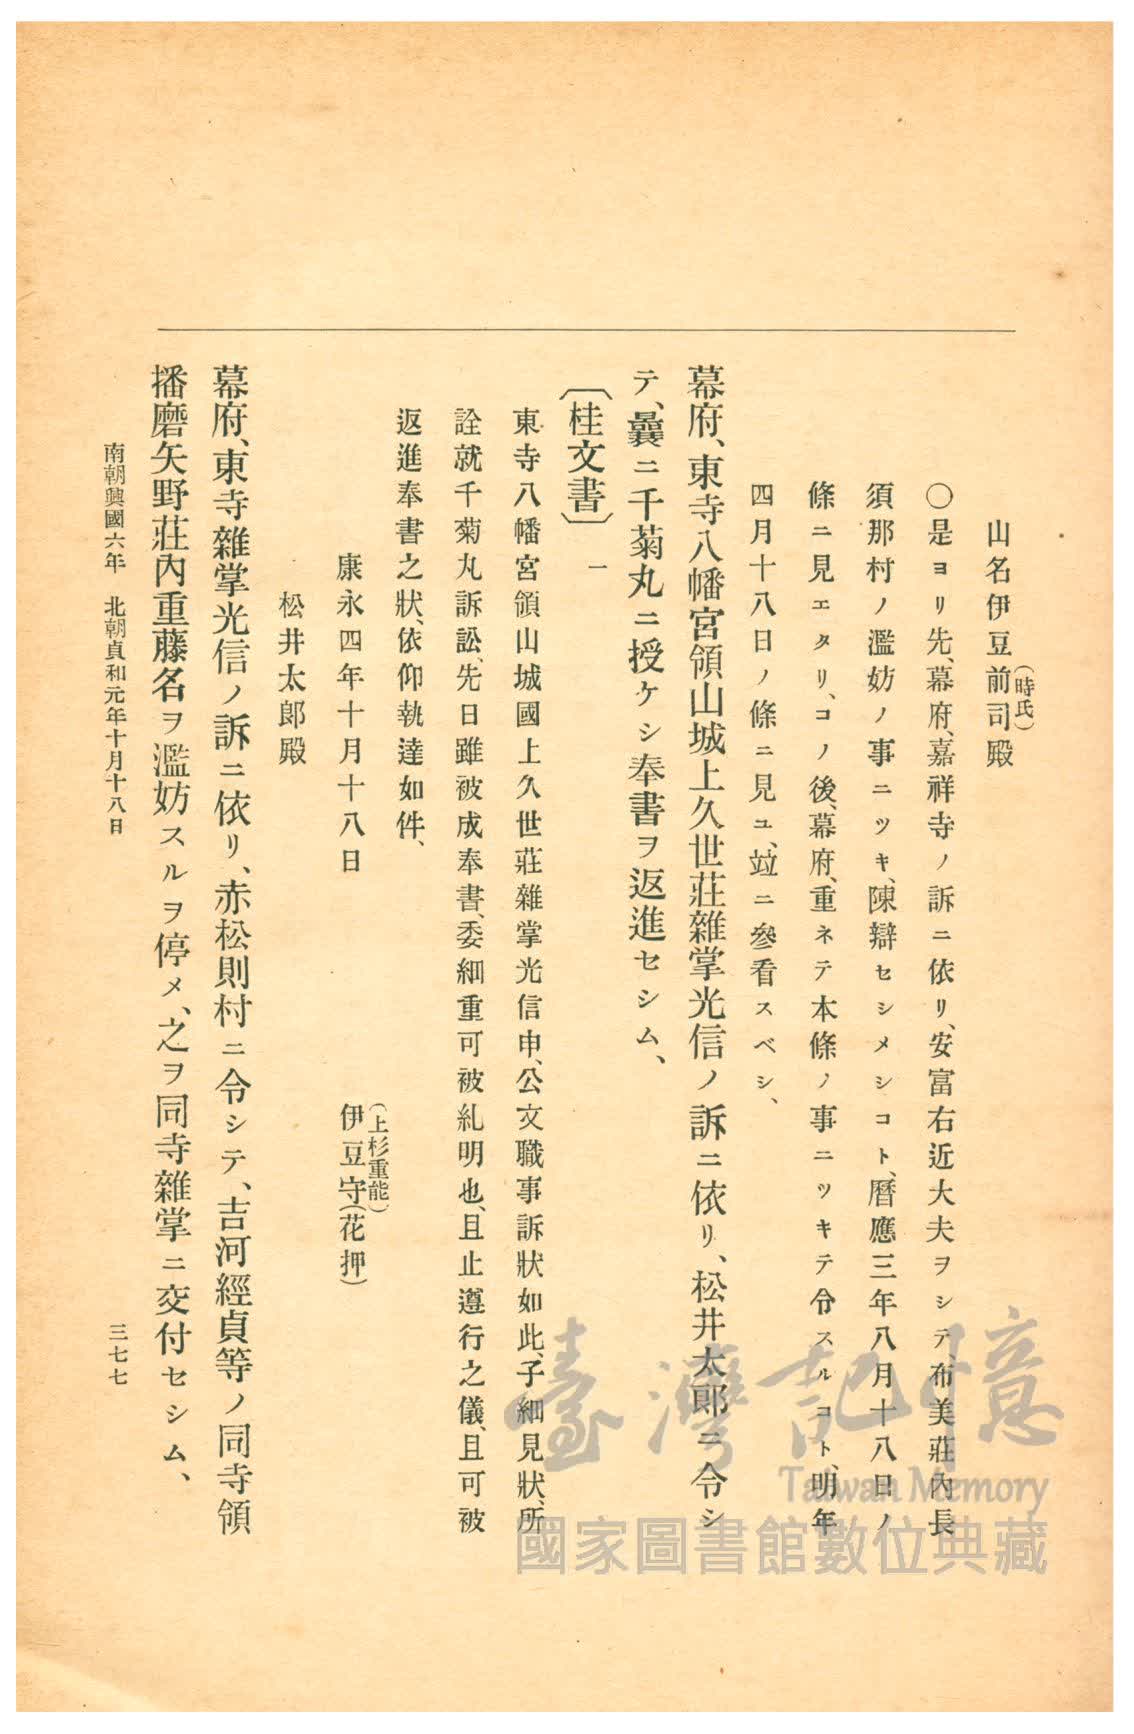 山名伊豆前司殿
(時氏)
〇是ヨリ先、幕府、嘉祥寺ノ訴ニ依リ、安富右近大夫ヲシテ、布美莊內長
須那村ノ濫妨ノ事ニツキ、陳辯セシメシコト、曆應三年八月十八日ノ
條ニ見エタリ、コノ後、幕府、重ネテ本條ノ事ニツキテ令スルコト、明年
四月十八日ノ條ニ見ユ、竝ニ參看スベシ、
幕府、東寺八幡宮領山城上久世莊雜掌光信ノ訴ニ依リ、松井太郎ニ令シ
テ、曩ニ千菊丸ニ授ケシ奉書ヲ返進セシム、
〔桂文書〕一
東寺八幡宮領山城國上久世莊雜掌光信申、公文職事訴狀如此、子細見狀、所
詮就千菊丸訴訟、先日雖被成奉書、委細重可被糺明也、且止遵行之儀、且可被
返進奉書之狀、依仰執達如件、
康永四年十月十八日
(上杉重能)
伊豆守(花押)
松井太郎殿
幕府、東寺雜掌光信ノ訴ニ依リ、赤松則村ニ令シテ、吉河經貞等ノ同寺領
播磨矢野莊內重藤名ヲ濫妨スルヲ停メ、之ヲ同寺雜掌ニ交付セシム、
南朝興國六年 北朝貞和元年十月十八日
三七七
臺灣記憶
Taiwan Memory
國家圖書館數位典藏